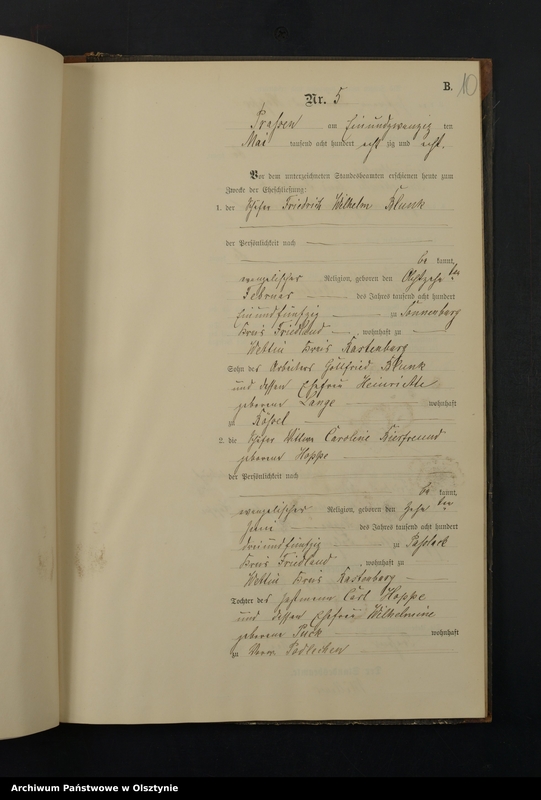 B. 10
Nr. 5
Prassen am Einundzwanzig ten
Mai tausend acht hundert acht zig und acht.
Vor dem unterzeichneten Standesbeamten erschienen heute zum
Zwecke der Eheschließung:
1. der Schäfer Friedrich Wilhelm Blunk
der Persönlichkeit nach
be kannt,
evangelischer Religion, geboren den Achtzehn ten
Februar des Jahres tausend acht hundert
Einundfünfzig zu Sonnenberg
Kreis Friedland, wohnhaft zu
Wettin Kreis Rastenburg
Sohn des Arbeiters Gottfried Blunk
und dessen Ehefrau Henriette
geborene Lange wohnhaft
zu Rössel
2. die Schäfer Witwe Caroline Bierfreund
geborene Hoppe
der Persönlichkeit nach
be kannt,
evangelischer Religion, geboren den Zehn ten
Juni des Jahres tausend acht hundert
dreiundfünfzig zu
Kreis Friedland, wohnhaft zu
Wettin Kreis Rastenburg
Tochter des Instmann Carl Hoppe
und dessen Ehefrau Wilhelmine
geborene Puck wohnhaft
zu Podlechen
Archiwum Państwowe w Olsztynie